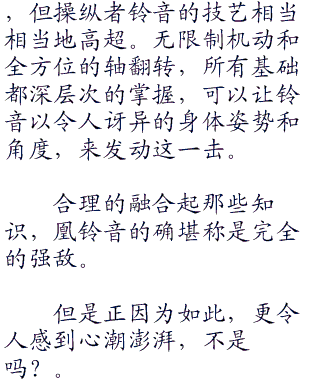 ，但操纵者铃音的技艺相当
相当地高超。无限制机动和
全方位的轴翻转，所有基础
都深层次的掌握，可以让铃
音以令人讶异的身体姿势和
角度，来发动这一击。
合理的融合起那些知
识，凰铃音的确堪称是完全
的强敌。
但是正因为如此，更令
人感到心潮澎湃，不是
吗？。